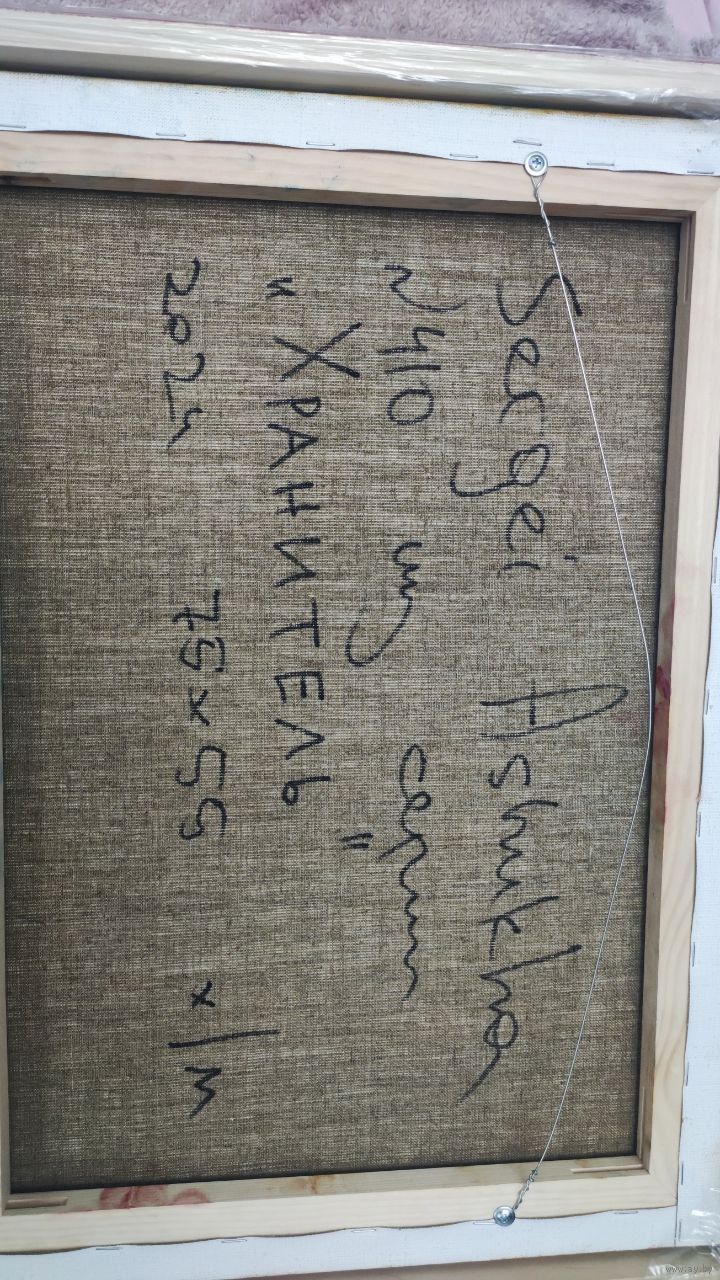 Sergei Ashukha
N410 из серии
"ХРАНИТЕЛЬ"
2024 75x55 х/м
www.ay.by